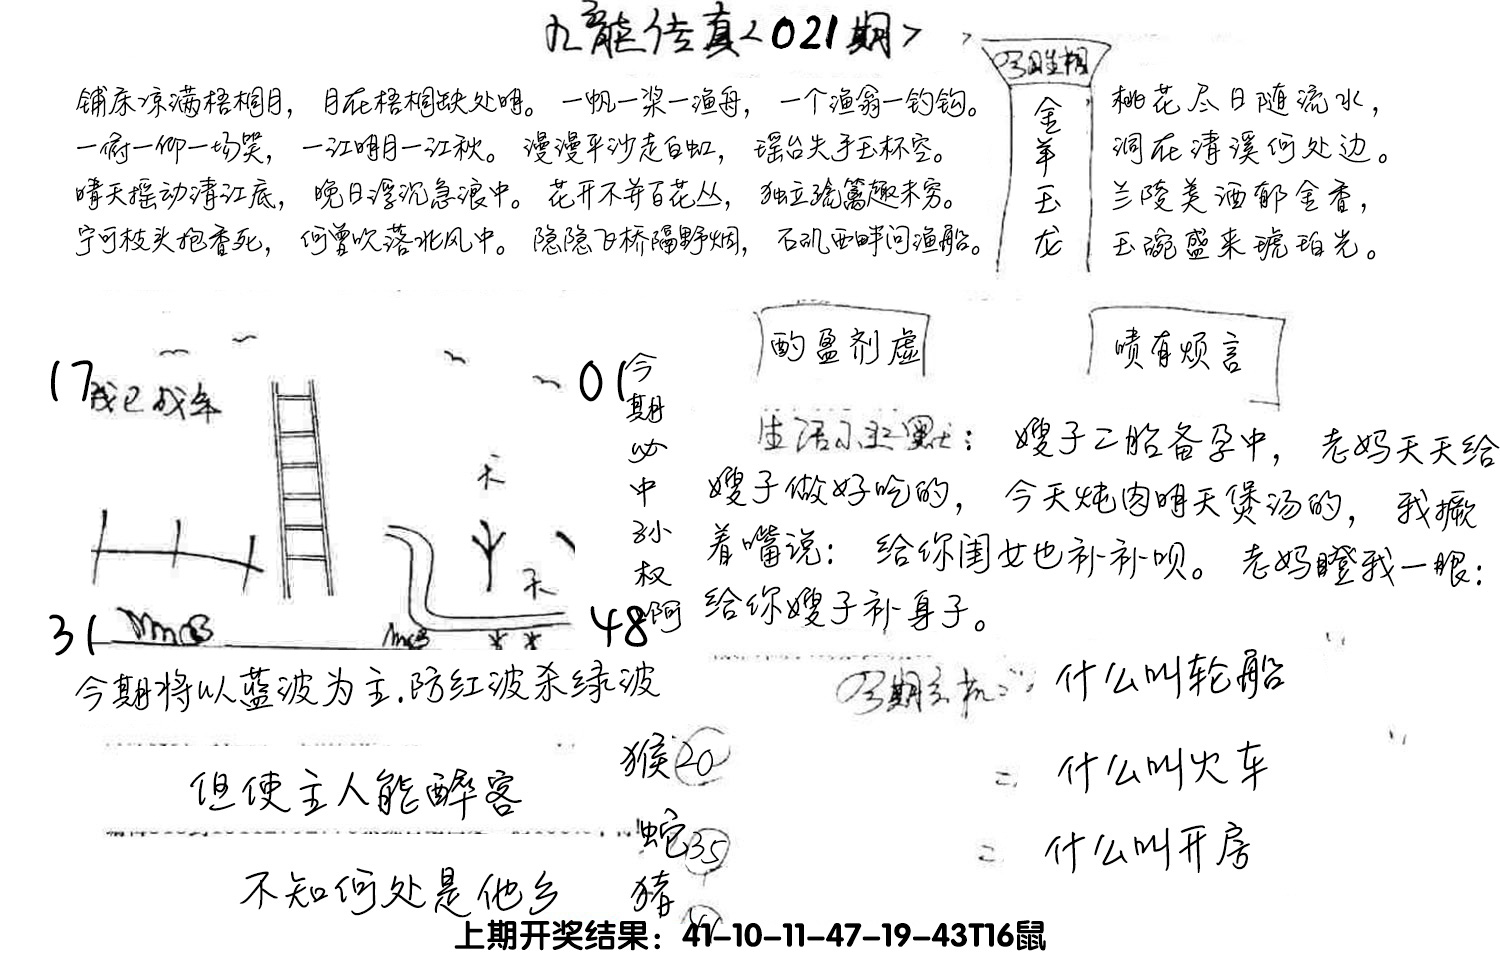 九龙传真<021期>
铺床凉满梧桐月，月在梧桐缺处明。一帆一桨一渔舟，一个渔翁一钓钩。
一俯一仰一场笑，一江明月一江秋。漫漫平沙走白虹，瑶台失手玉杯空。
晴天摇动清江底，晚日浮沉急浪中。花开不并百花丛，独立疏篱趣未穷。
宁可枝头抱香死，何曾吹落北风中。隐隐飞桥隔野烟，石矶西畔问渔船。
今期生相
金羊玉龙
桃花尽日随流水，
洞在清溪何处边。
兰陵美酒郁金香，
玉碗盛来琥珀光。
酌盈剂虚
啧有烦言
17
01
31
48
天
天
今期必中孙权啊
生活小幽默：嫂子二胎备孕中，老妈天天给
嫂子做好吃的，今天炖肉明天煲汤的，我撅
着嘴说：给你闺女也补补呗。老妈瞪我一眼：
给你嫂子补身子。
今期将以蓝波为主.防红波杀绿波
今期玄机：什么叫轮船
二 什么叫火车
二 什么叫开房
但使主人能醉客
不知何处是他乡
猴20
蛇35
猪
上期开奖结果：41-10-11-47-19-43T16鼠